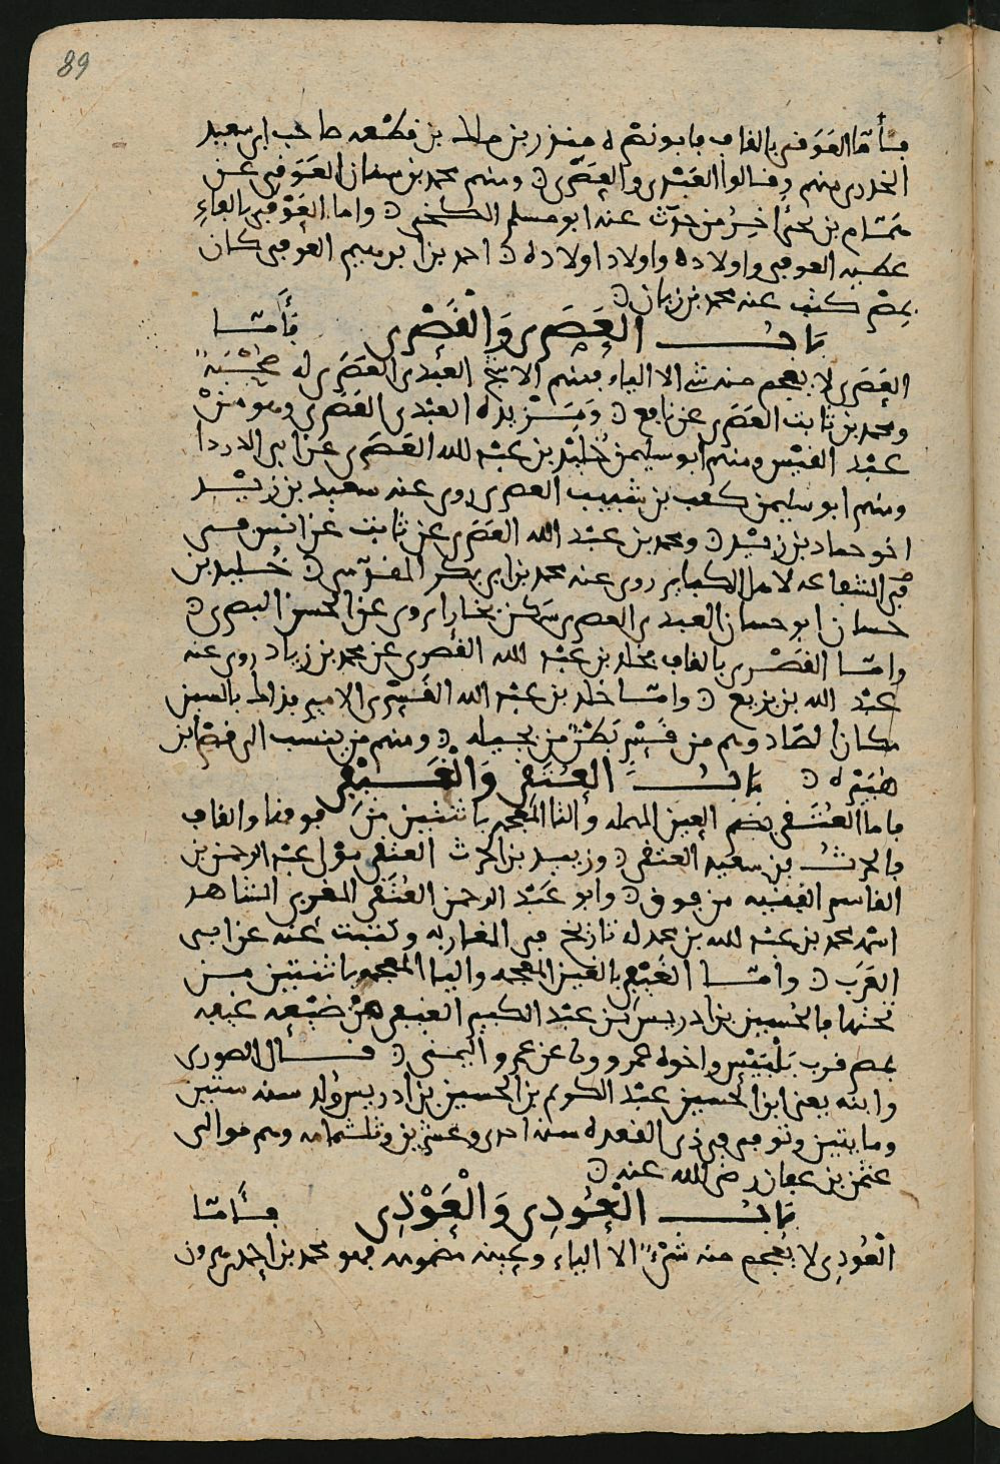 89
فأما العَوَقي بالقاف فابو نضرة منذر بن مالك بن قطعه صاحب ابي سعيد
الخدري منهم وقالوا العَبْدي والعَصَري ومنهم محمد بن سنان العَوَقي عن
همّام بن يحيى اخِرُ من حدّث عنه ابو مسلم الكجي واما العَوْفي بالفاءِ
عطيه العوفي واولاده واولاد اولاده احمد بن ابرهيم العوفي كان
بمصْر كتب عنه محمد بن زبان
بَابُ العَصَري وَالْقَصْري فَأَمّا
العَصَري لا يعجم منه شي الا الياء فمنهم الاشج العبْدي العَصَري له صُحْبَة
ومحمد بن ثابت العَصَري عن نافع وَمَزْيده العبْدي العَصَري وهو منْ
عبْد القيْس ومنهم ابو سليمن خُليْد بن عبْد الله العَصَري عن ابي الدردا
ومنهم ابو سليمن كعب بن شبيب العصري روى عنه سعيد بن زيْد
اخو حماد بن زيْد ومحمد بن عبْد الله العَصَري عن ثابت عن انس في
الشفاعه لاهل الكباير روى عنه محمد بن ابي بكر المقدّمي خُليد بن
حسان ابو حسان العبدي العصري سَكن بخارا يروي عن الحسن البصري
وامّا القَصْري بالقاف مخلد بن عبْد الله القصري عن محمد بن زياد روى عنه
عبْد الله بن بزيع وامّا خلد بن عبْد الله القَسْري الامير فذاك بالسين
مكان الصّاد وهم من قَسْر بَطْنٌ من بجيله ومنهم من ينسب الى قصْر ابن
هُبَيْره بَابُ العُتَقي وَالْغَيْفي
فاما العُتَقي بضم العين المهمله والتا المعجمه باثنتين منْ فوقها والقاف
فالحرثُ بن سعيد العتقي وزبيد بن الحرث العتقي مولى عبْد الرحمن بن
القاسم الفقيه من فوق وابو عَبْد الرحمن العُتَقي المغربي الشاهد
اسمه محمد بن عبْد الله بن محمد له تاريخ في المغاربه وكتبت عنه عن ابي
العَرَب وامّا الغَيْفي بالغين المعجمه واليا المعجمه باثنتين من
تحتها فالحُسين بن ادريس بن عبْد الكبير الغيفي منْ ضيْعه غيفه
بمصر قرب بَلْبَيْس واخوه عمرو وعن عمرو اليمني قال الصوري
وابنه يعني ابن الحسين عبْد الكريم بن الحسين بن ادريس وُلد سنه ستين
ومايتين وتوفي في ذي القعده سنه احدى وعشرين وثلثمايه وهم موالي
عثمن بن عفان رضي الله عنه
بَابُ الْعُودِي وَالْعَوْذِي فَأَمّا
الْعُودِي لا يُعجم منه شَيْءٌ الا الياء وعينه مضمومه فهو محمد بن احمد بن هرون